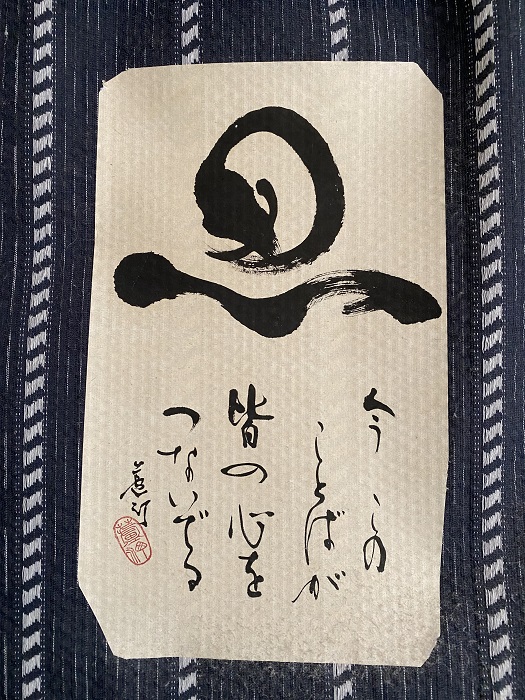 今 この
ことばが
皆の心を
つないでる